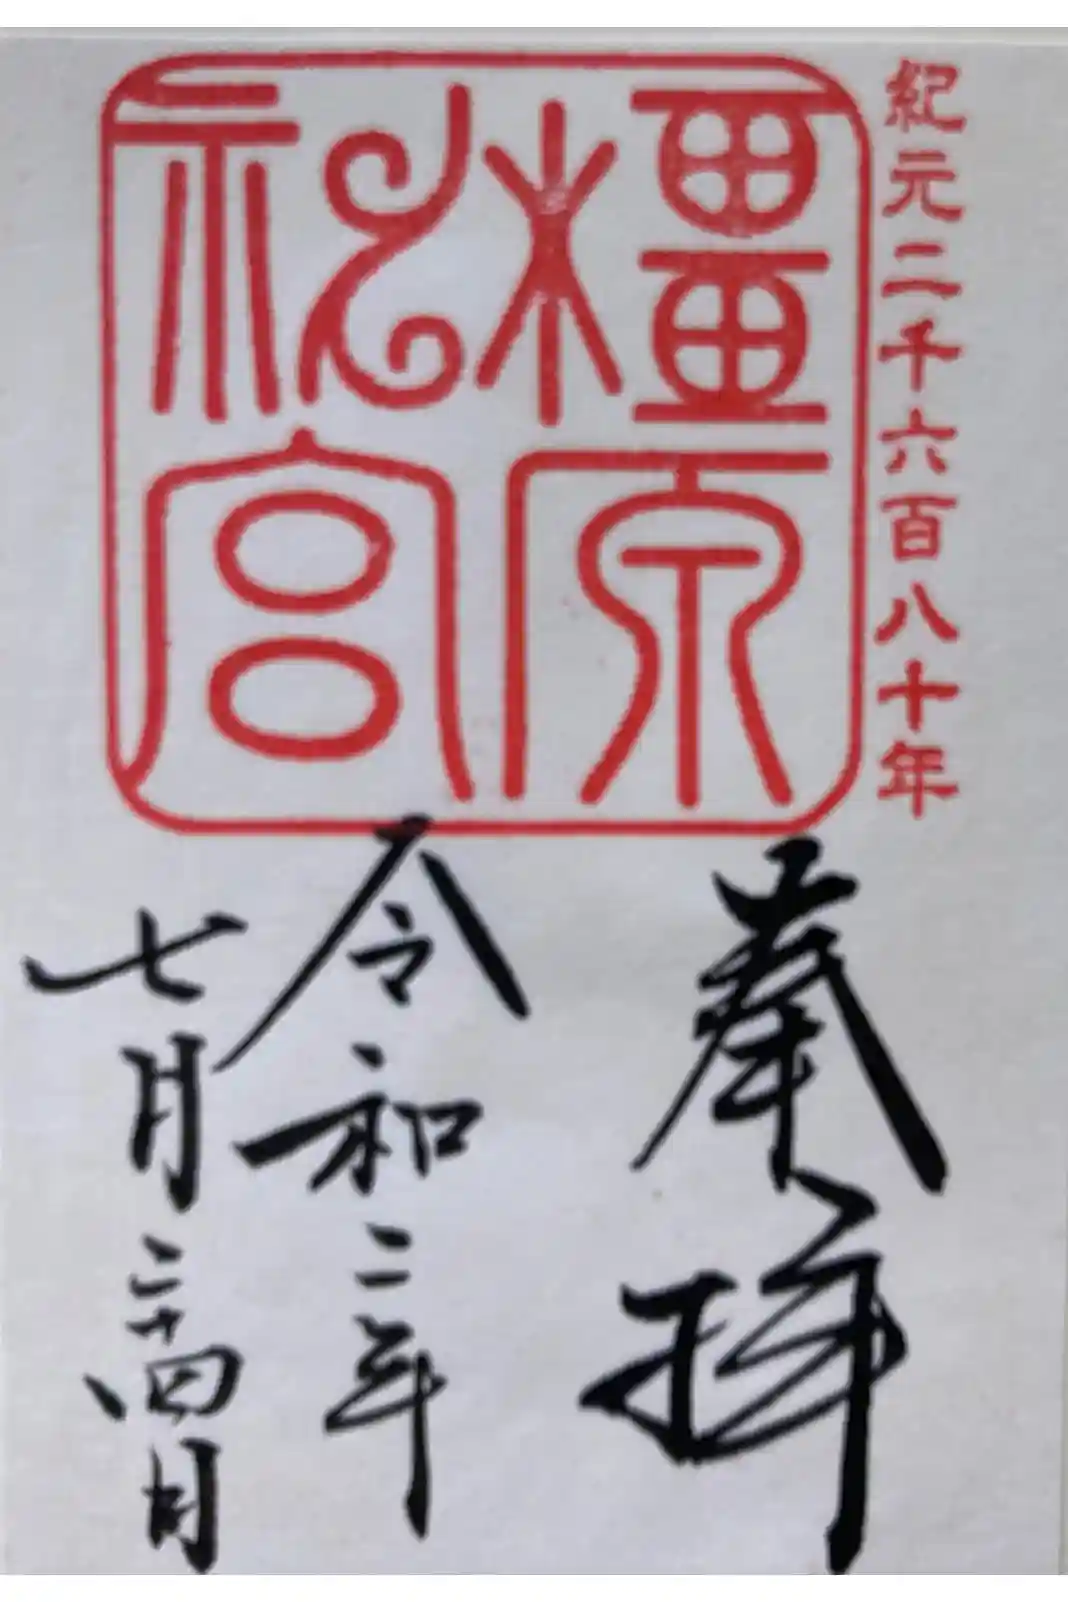 紀元二千六百八十年
橿原
神宮
奉拝
令和二年
七月二十四日